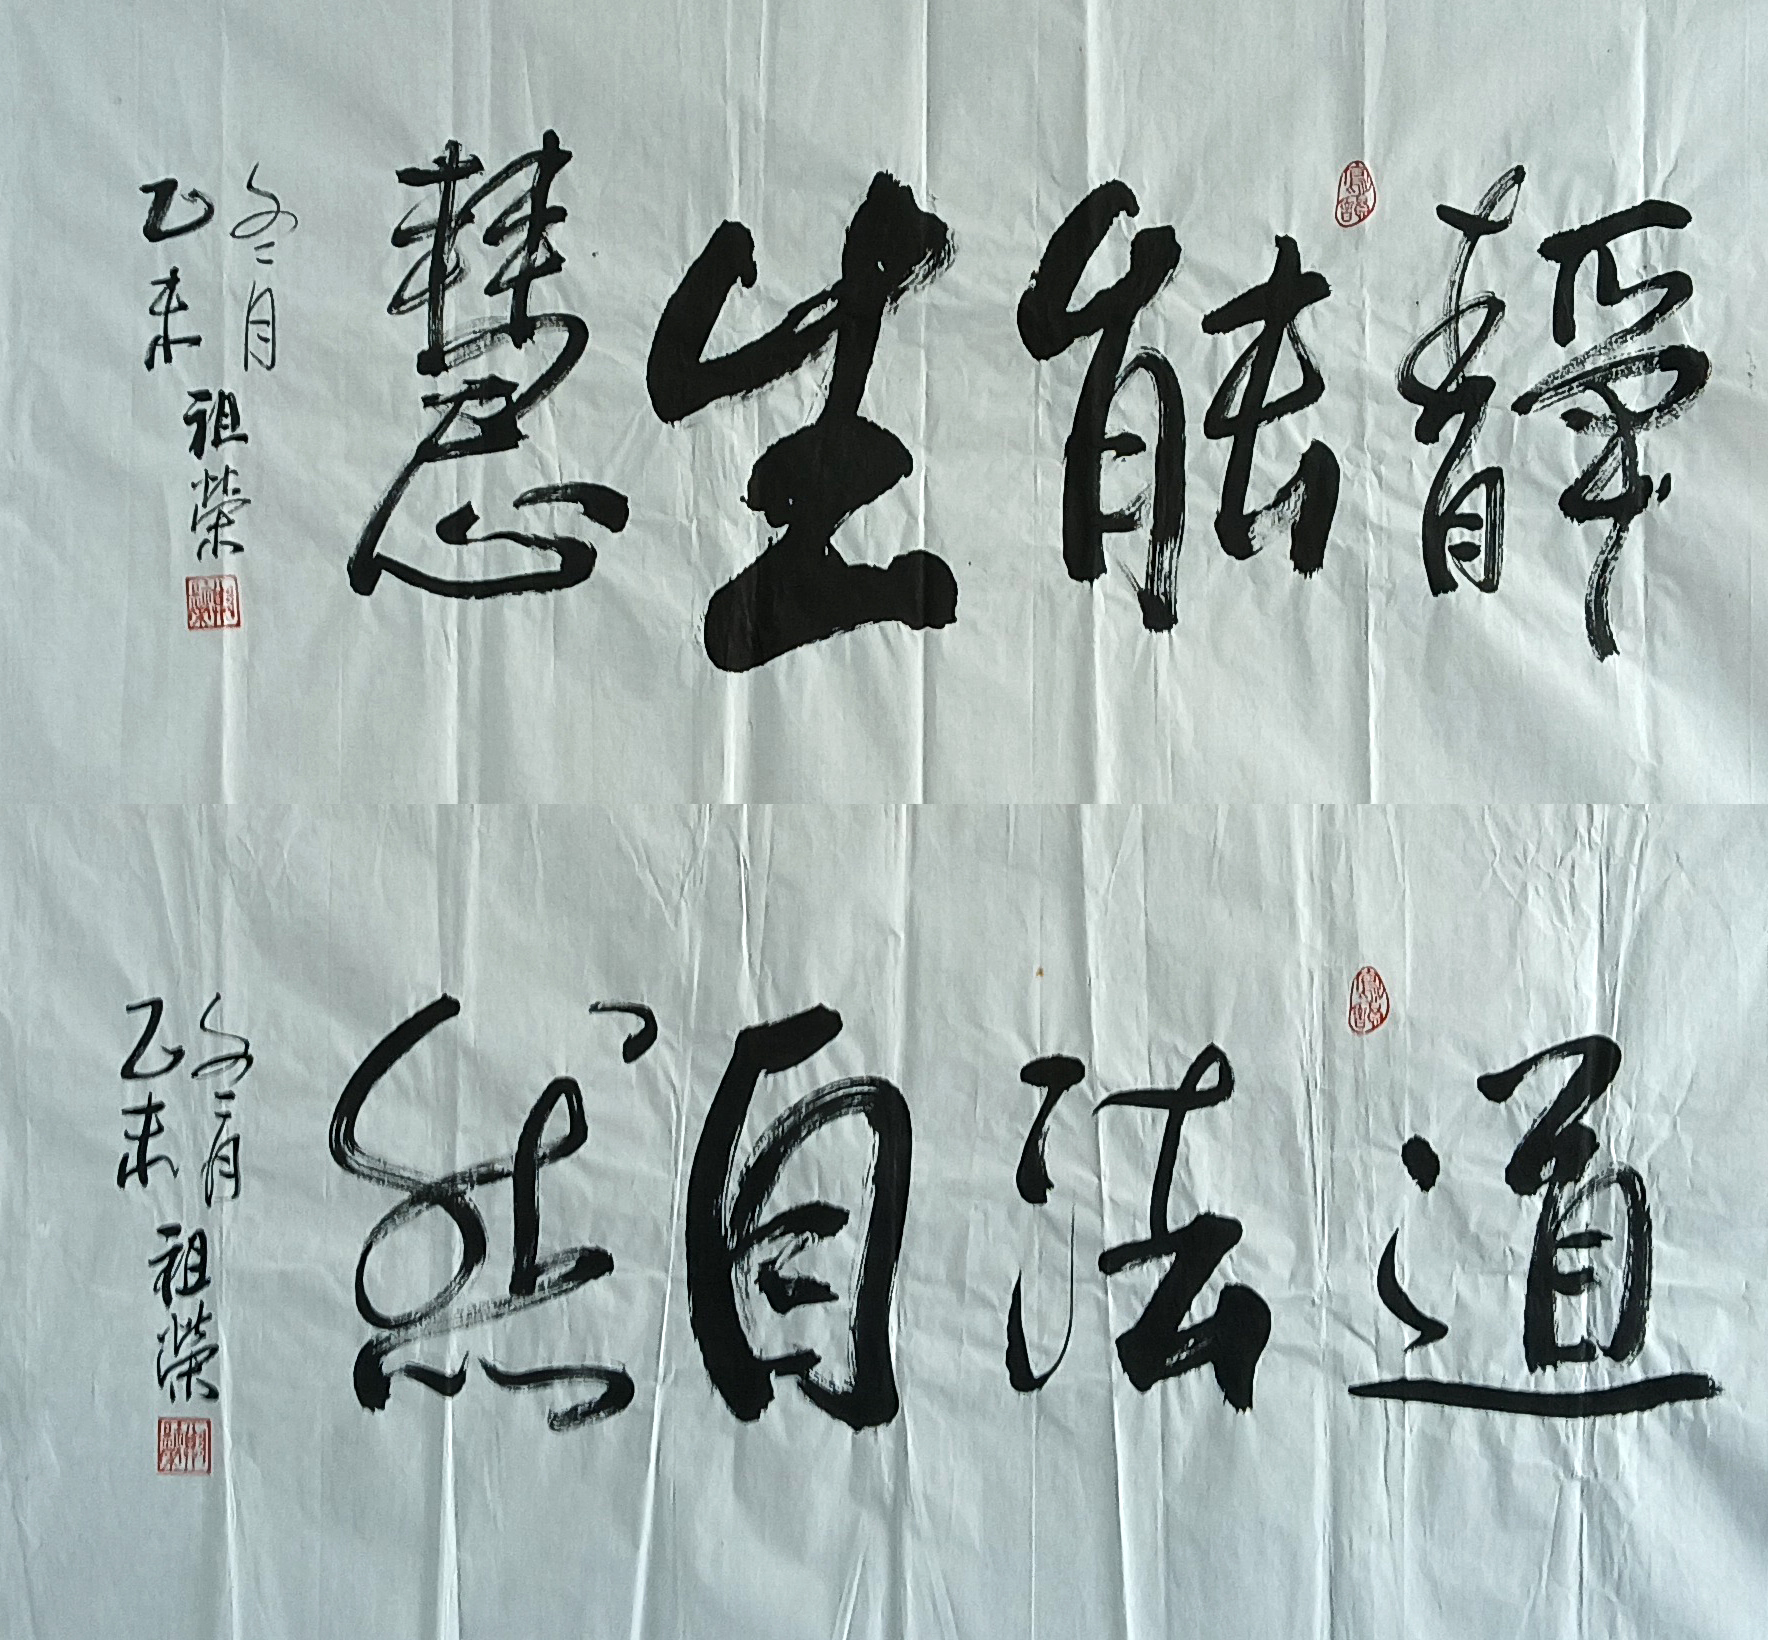 靜能生慧
乙未
冬二月
祖榮
道法自然
乙未
冬二月
祖榮